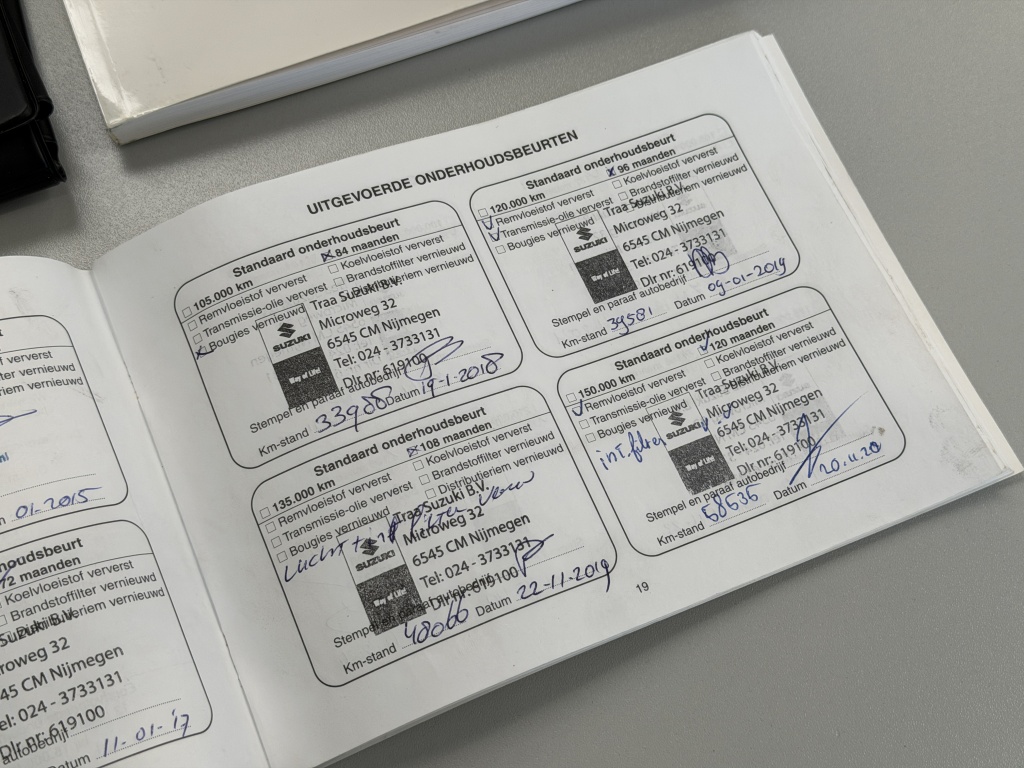 01-2015
noudsbeurt
2 maanden
Koelvloeistof ververst
Brandstoffilter vernieuwd
Suzuki B.V.
roweg 32
45 CM Nijmegen
el: 024 - 3733131
Dlr nr: 619100
autobedrijf
atum 11-01-'17
UITGEVOERDE ONDERHOUDSBEURTEN
Standaard onderhoudsbeurt
105.000 km
84 maanden
Remvloeistof ververst
Koelvloeistof ververst
Transmissie-olie ververst
Brandstoffilter vernieuwd
Bougies vernieuwd
Distributieriem vernieuwd
SUZUKI
Way of Life!
Traa Suzuki B.V.
Microweg 32
6545 CM Nijmegen
Tel: 024 - 3733131
Dlr nr: 619100
Stempel en paraaf autobedrijf
Km-stand 33988 Datum 19-1-2018
Standaard onderhoudsbeurt
120.000 km
96 maanden
Remvloeistof ververst
Koelvloeistof ververst
Transmissie-olie ververst
Brandstoffilter vernieuwd
Bougies vernieuwd
Distributieriem vernieuwd
SUZUKI
Traa Suzuki B.V.
Microweg 32
6545 CM Nijmegen
Tel: 024 - 3733131
Dlr nr: 619100
Stempel en paraaf autobedrijf
Km-stand 39581 Datum 09-01-2019
Standaard onderhoudsbeurt
135.000 km
108 maanden
Remvloeistof ververst
Koelvloeistof ververst
Transmissie-olie ververst
Brandstoffilter vernieuwd
Bougies vernieuwd
Distributieriem vernieuwd
Way of Life!
Traa Suzuki B.V.
Microweg 32
6545 CM Nijmegen
Tel: 024 - 3733131
Dlr nr: 619100
Stempel en paraaf autobedrijf
Km-stand 48060 Datum 22-11-2019
Standaard onderhoudsbeurt
150.000 km
120 maanden
Remvloeistof ververst
Koelvloeistof ververst
Transmissie-olie ververst
Brandstoffilter vernieuwd
Bougies vernieuwd
Distributieriem vernieuwd
int.filter
SUZUKI
Way of Life!
Traa Suzuki B.V.
Microweg 32
6545 CM Nijmegen
Tel: 024 - 3733131
Dlr nr: 619100
Stempel en paraaf autobedrijf
Km-stand 58636 Datum 20.11.20
19